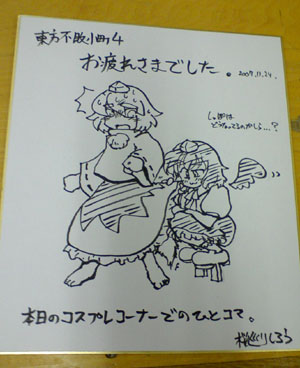 東方不敗小町4
お疲れさまでした。2009.11.24.
しっぽは
どうなってるのかしら…?
本日のコスプレコーナーでのひとコマ。